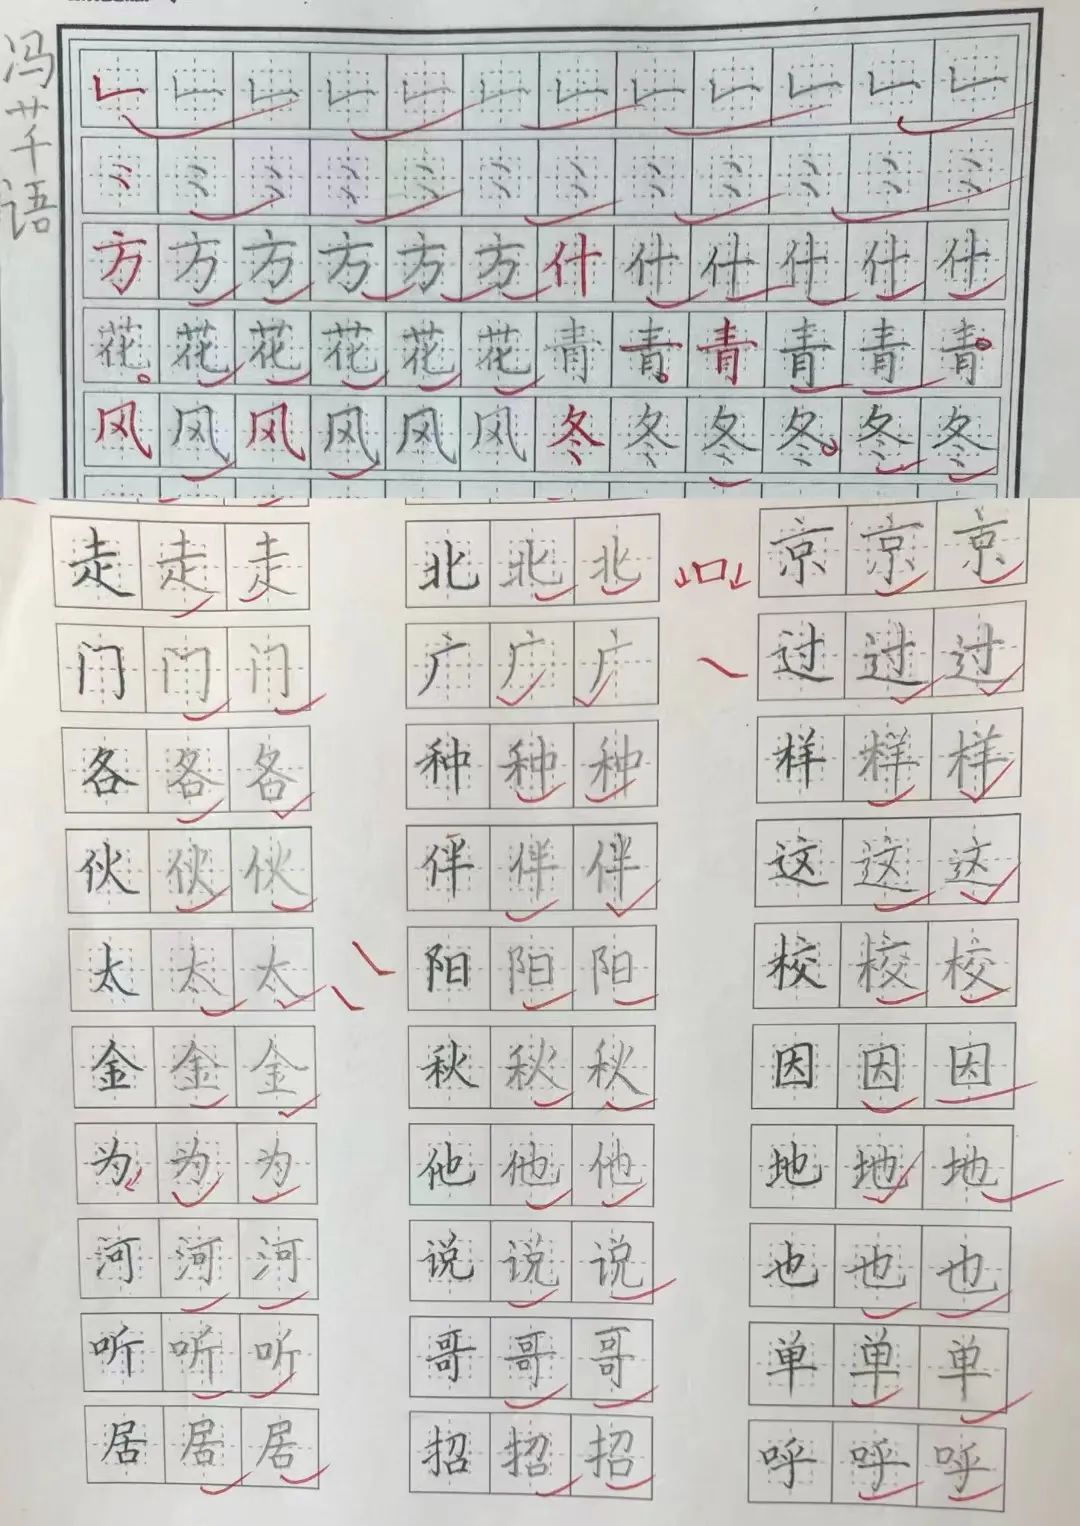 冯芊语
方方方方方方什什什什什什
花花花花花花青青青青青青
风风风风风风冬冬冬冬冬冬
走走走 北北北 京京京
门门门 广广广 过过过
各各各 种种种 样样样
伙伙伙 伴伴伴 这这这
太太太 阳阳阳 校校校
金金金 秋秋秋 因因因
为为为 他他他 地地地
河河河 说说说 也也也
听听听 哥哥哥 单单单
居居居 招招招 呼呼呼